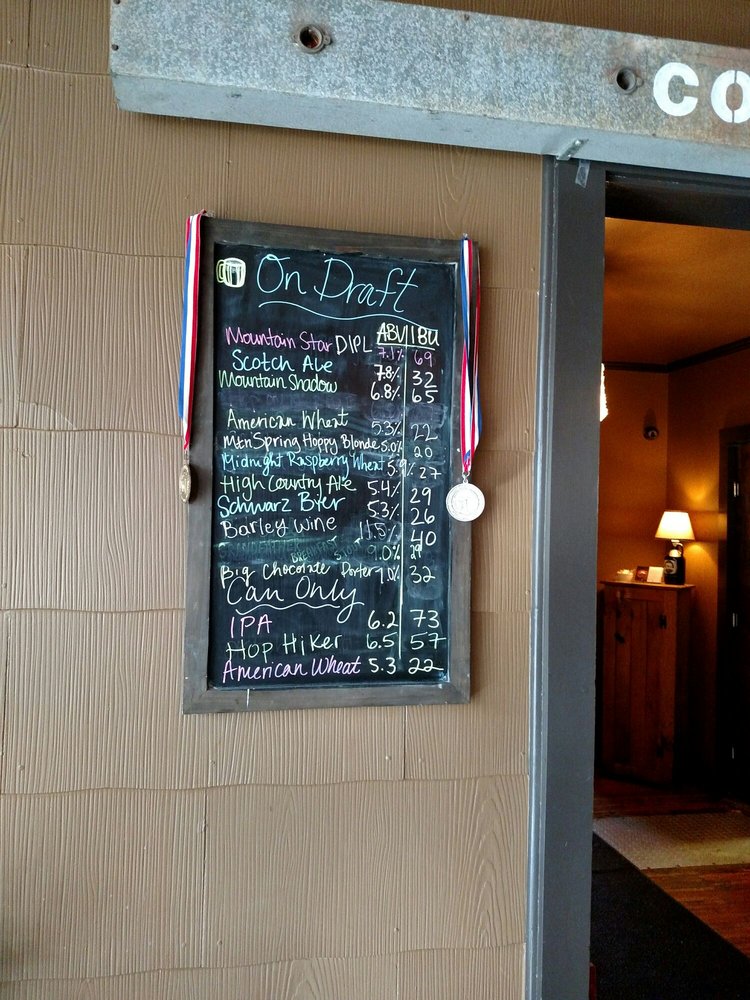 CO
On Draft
ABV IBU
Mountain Star DIPL 7.1% 69
Scotch Ale 7.8% 32
Mountain Shadow 6.8% 65
American Wheat 5.3% 22
Mtn Spring Hoppy Blonde 5.0% 20
Midnight Raspberry Wheat 5.9% 27
High Country Ale 5.4% 29
Schwarz Bier 5.3% 26
Barley Wine 11.5% 40
9.0% 29
Big Chocolate Porter 7.0% 32
Can Only
IPA 6.2 73
Hop Hiker 6.5 57
American Wheat 5.3 22